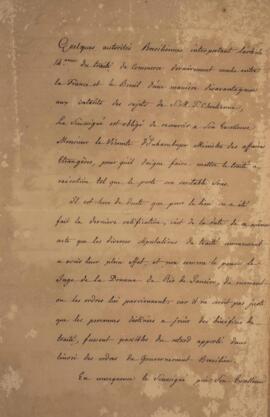 Quelques autorités Brésiliennes interprétant l'article
14ème du traité de Commerce dernièrement conclu entre
la France et le Brésil d'une manière désavantageuse
aux intérêts des sujets de S. M. T. Chrétienne,
le Soussigné est obligé de recourir à Son Excellence
Monsieur le Vicomte d'Inhambupe Ministre des affaires
Etrangères, pour qu'il daigne faire mettre le traité à
exécution tel que le porte son véritable sens.
Il est hors de doute que pour le lieu où a été
fait la dernière ratification, c'est de la date de ce même
acte que les diverses stipulations du traité commencent
à avoir leur plein effet, et non comme le pense le
Juge de la Douane de Rio de Janeiro, du moment
où les ordres lui parviennent: car il ne serait pas juste
que les personnes destinées à jouir des bénéfices du
traité, fussent passibles du retard apporté dans
l'envoi des ordres du Gouvernement Brésilien.
En conséquence le Soussigné prie Son Excellence